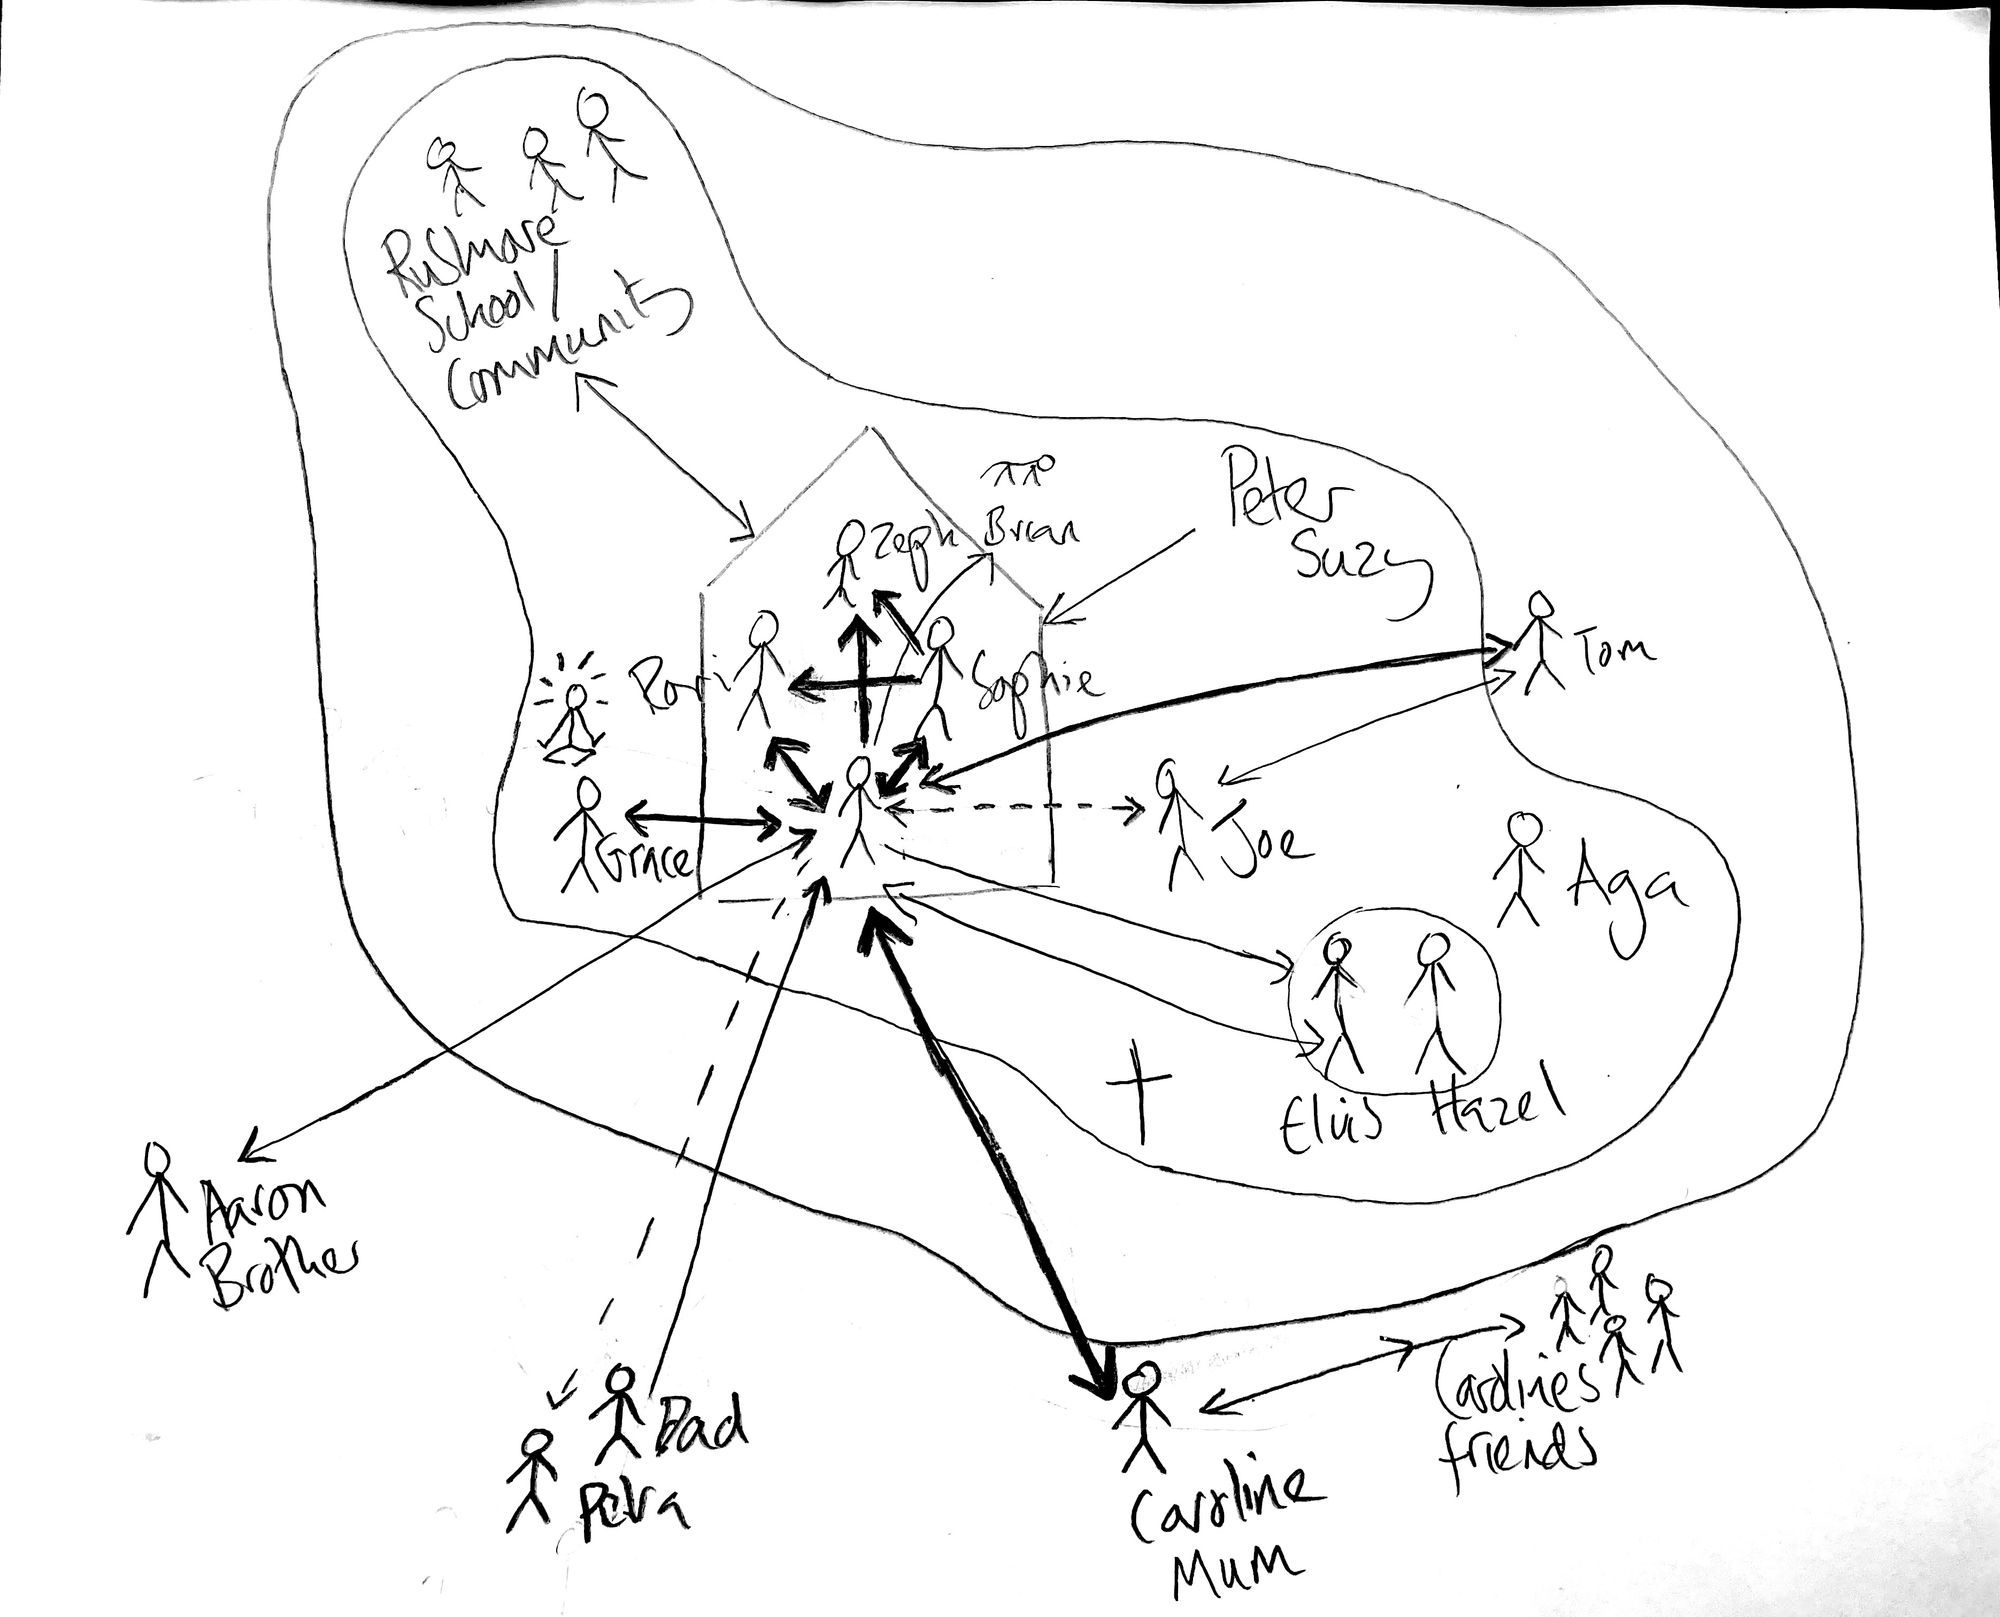 Rushmore
School /
Community
Peter
Suzy
Zeph
Brian
Rori
Sophie
Tom
Grace
Joe
Aga
Elvis
Hazel
Aaron
Brother
Dad
Petra
Caroline
Mum
Carolines
friends